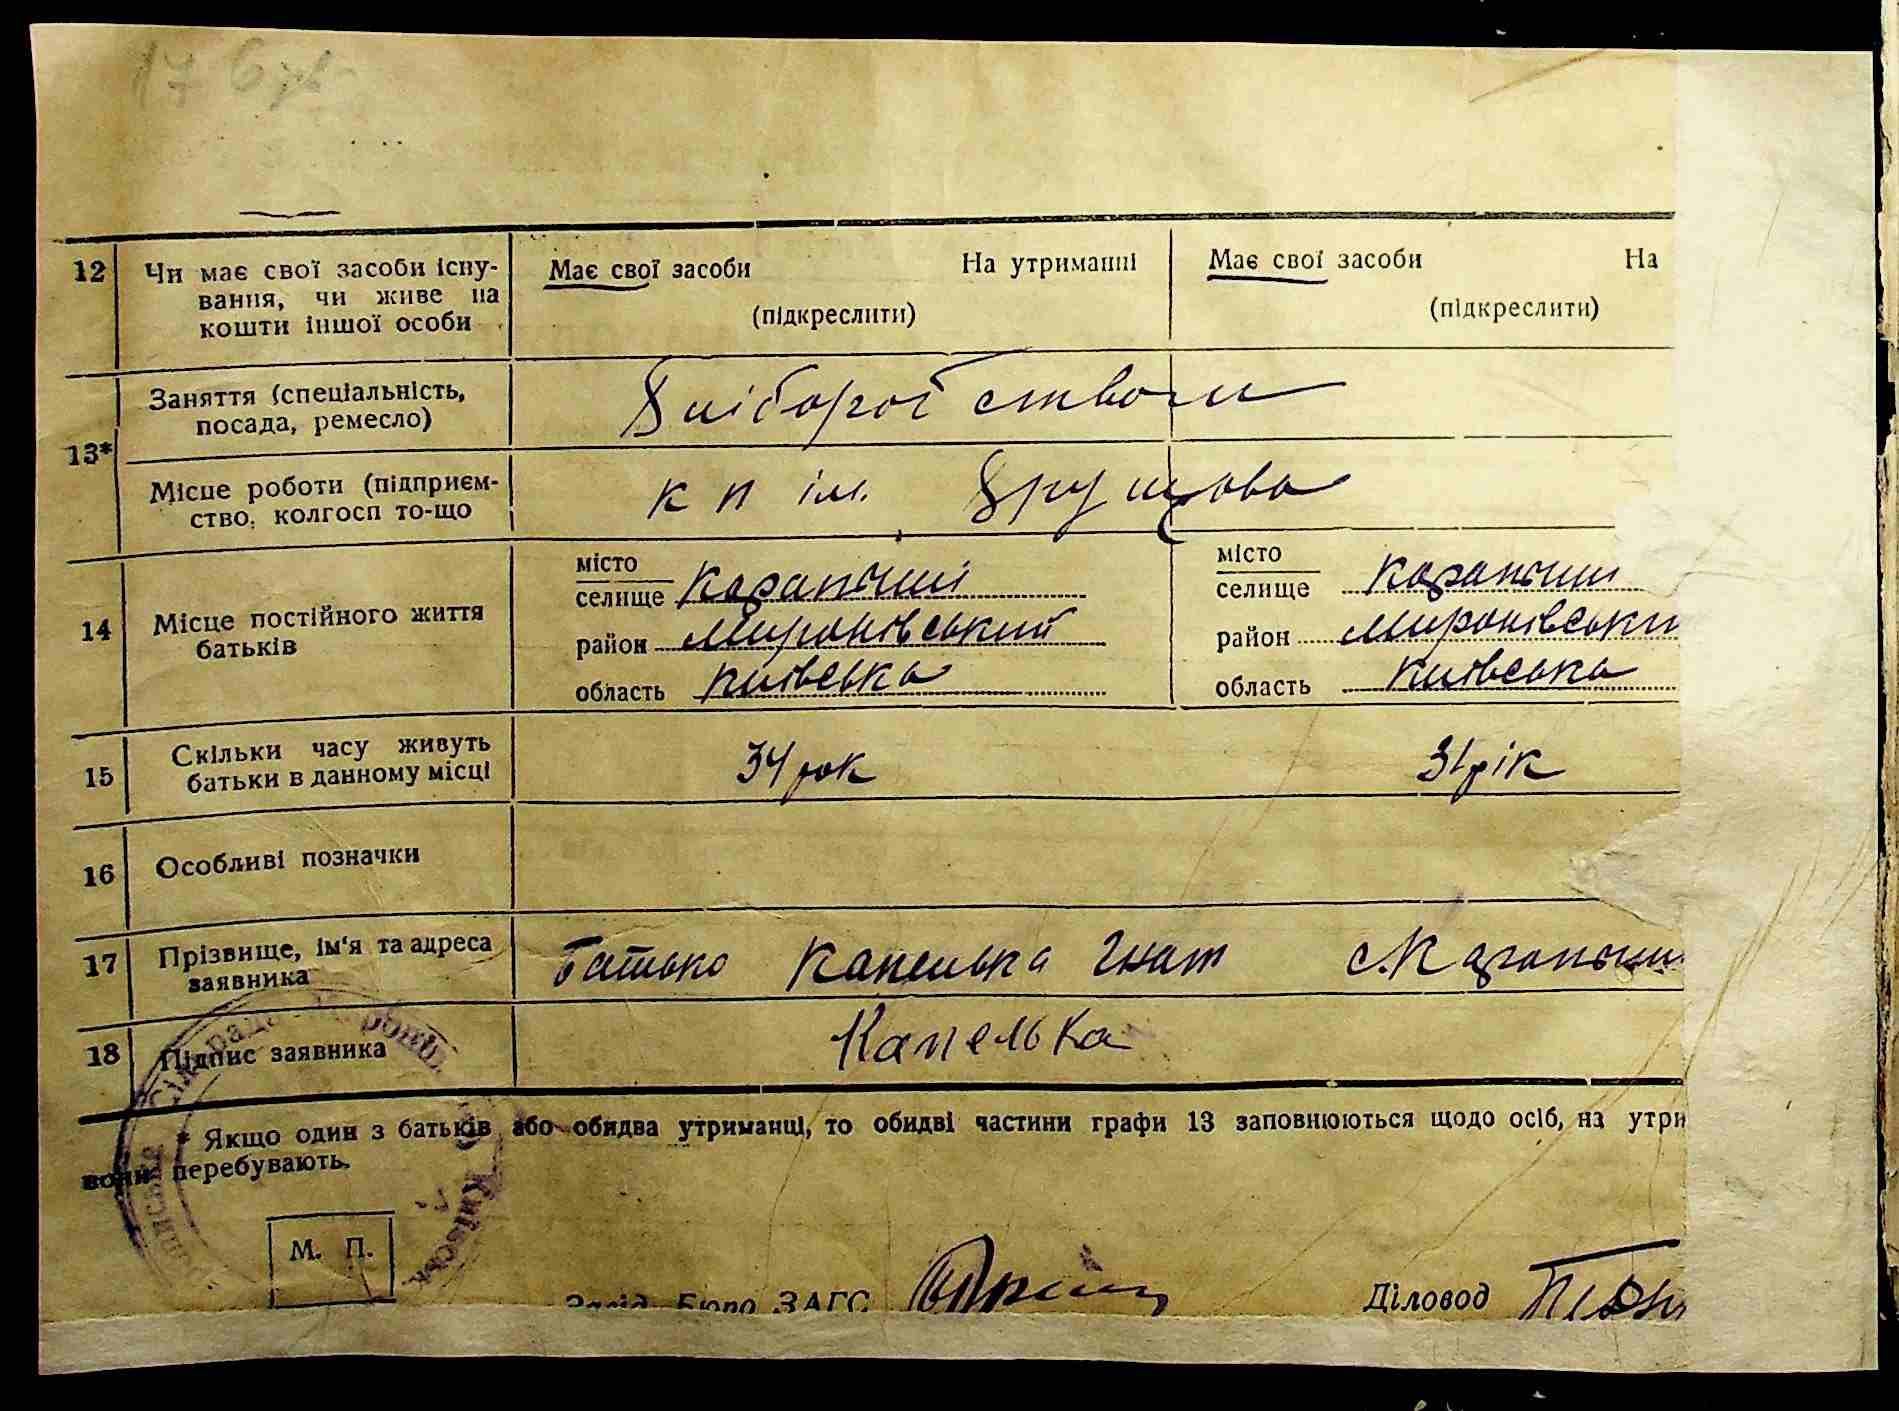 12 Чи має свої засоби існу-
вання, чи живе на
кошти іншої особи
Має свої засоби На утриманні
(підкреслити)
Має свої засоби На
(підкреслити)
13*
Заняття (спеціальність,
посада, ремесло)
Місце роботи (підприєм-
ство, колгосп то-що
к п ім.
14 Місце постійного життя
батьків
місто
селище Карапиши
район Миронівський
область Київська
місто
селище Карапиши
район Миронівськи
область Київська
15 Скільки часу живуть
батьки в данному місці
34 рок
31 рік
16 Особливі позначки
17 Прізвище, ім'я та адреса
заявника
Батько Капелька Гнат с. Карапиши
18 Підпис заявника
Капелька
* Якщо один з батьків або обидва утриманці, то обидві частини графи 13 заповнюються щодо осіб, на утри
вони перебувають.
М. П.
Завід. Бюро ЗАГС
Діловод